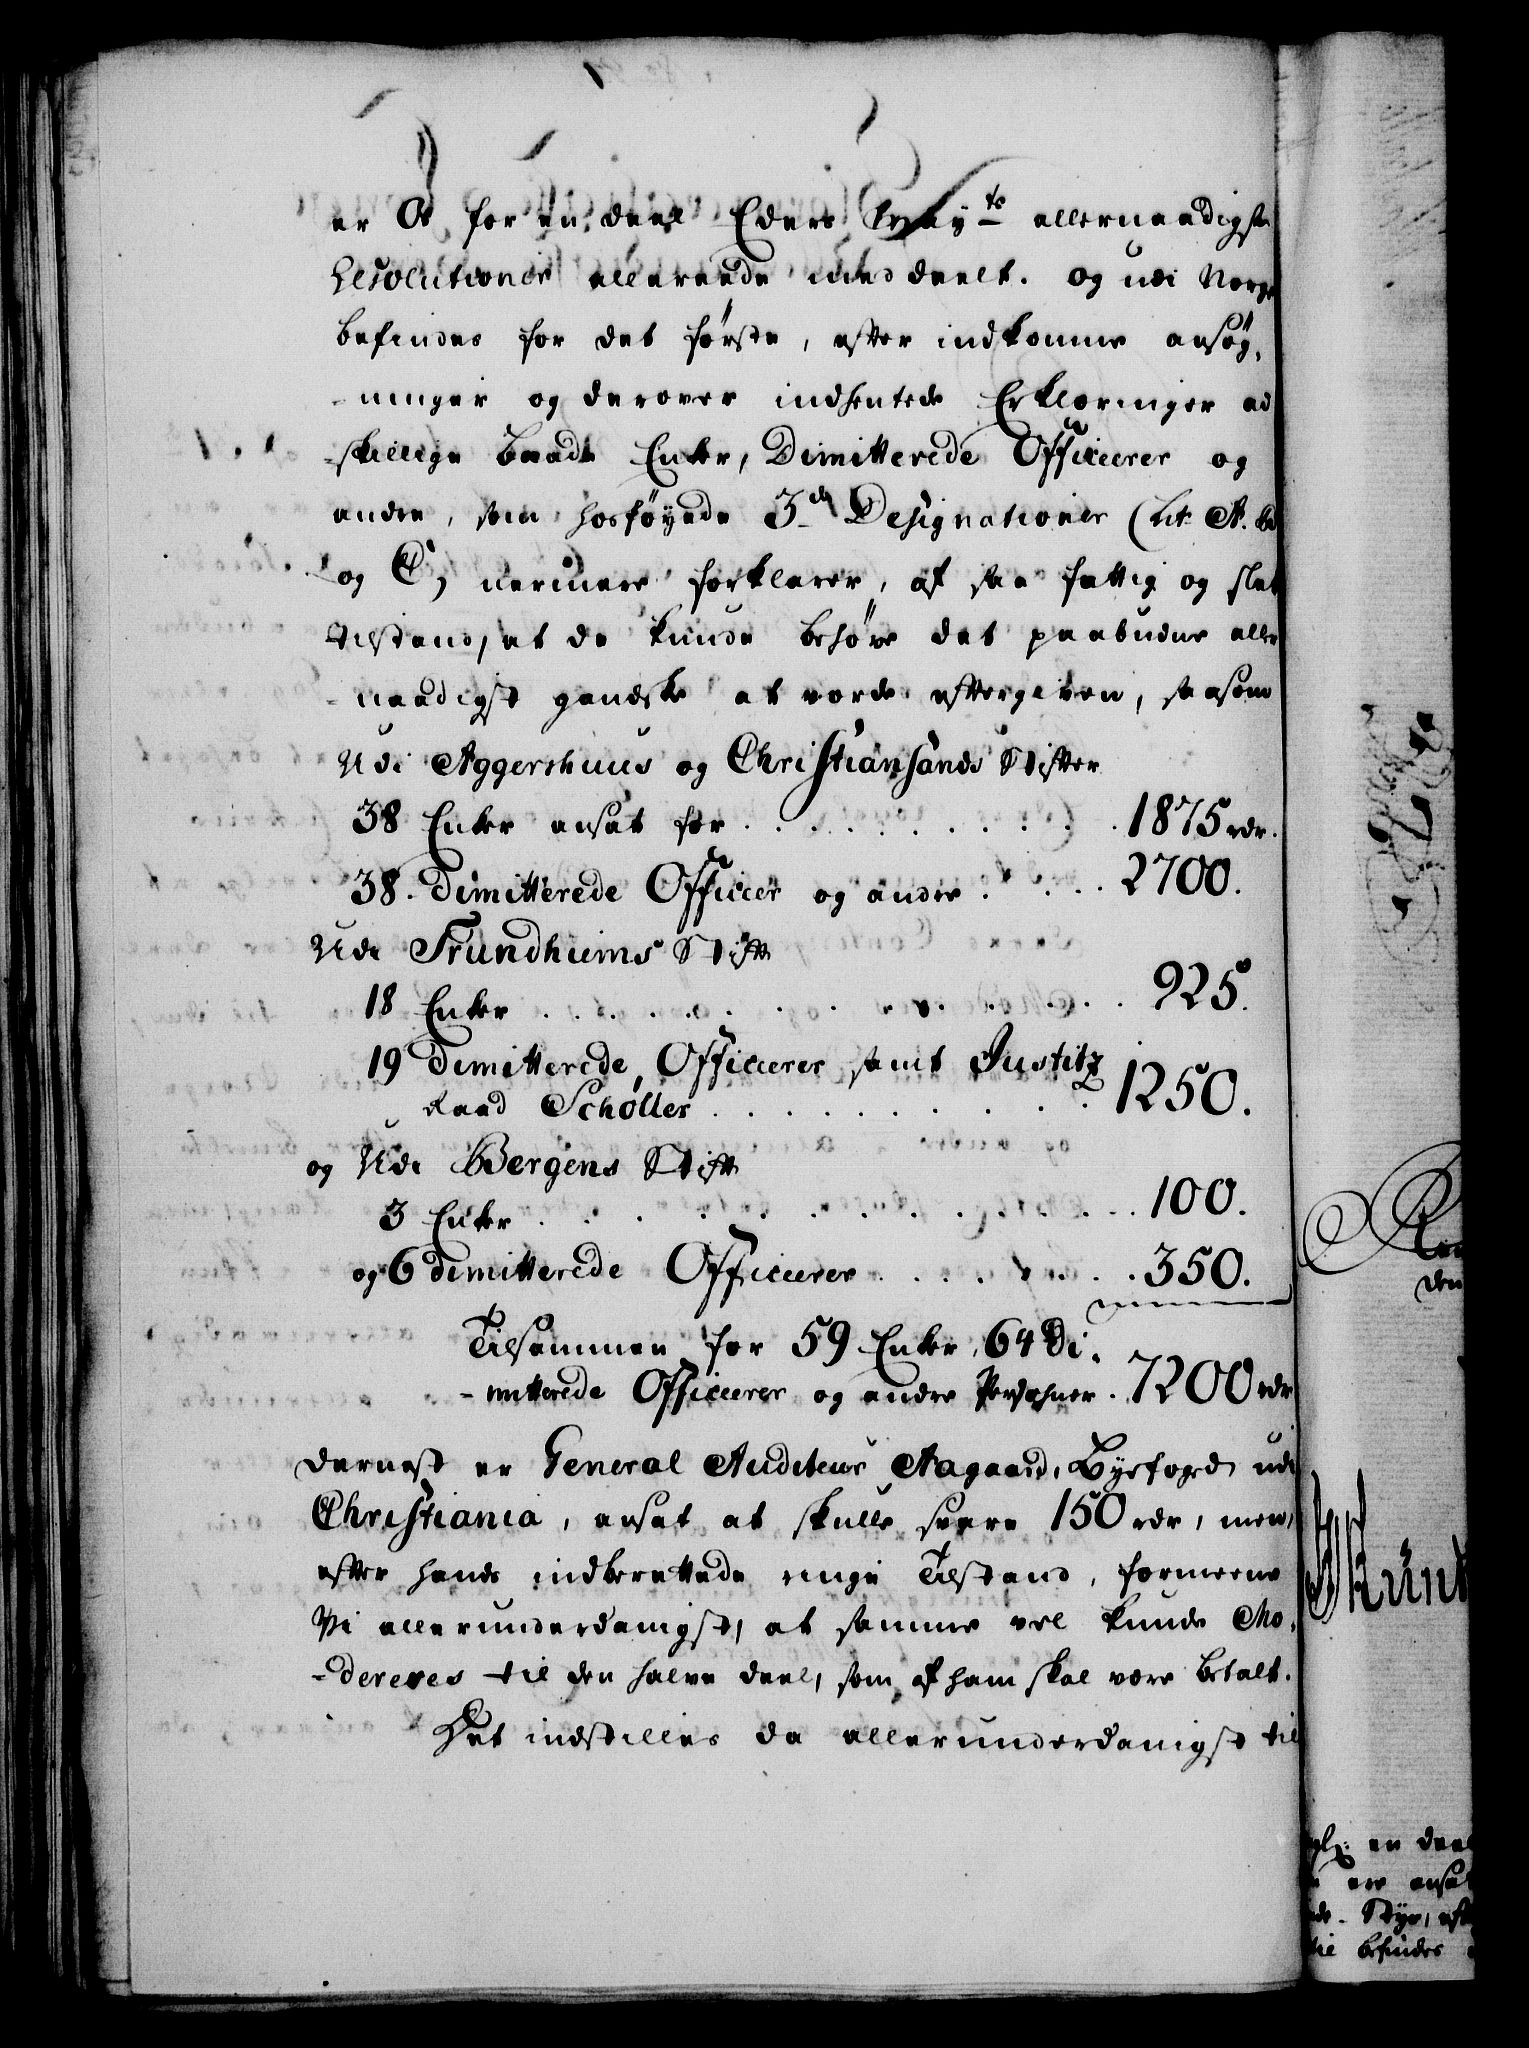 er Ot for en deel Eders May<sup>ts</sup> allernaadigste
Resolutioner allereede meddeelt. og udi Norge
befindes for det første, efter indkomne ansøg,
-ninger og derover indhentede Erklæringer ad
-skillige baade Enker, Dimitterede Officierer og
andre, som hosføyede 3de Designationer (Lit A. B
og C) nermere forklarer, af saa fattig og slet
tilstand, at de kunde behøve det paabudne aller
-naadigst gandske at vorde eftergiven, saasom
Udi Aggershuus og Christiansands Stifter
38 Enker ansat for . . . . . . . . . . 1875 rdr.
38. dimitterede Officier og andre . . . . 2700.
Udi Trundhiems Stift
18 Enker . . . . . . . . . . . . 925.
19 dimitterede Officierer samt Justitz
Raad Schøller . . . . . . . . . . 1250.
og Udi Bergens Stift
3 Enker . . . . . . . . . . . . 100.
og 6 dimitterede Officierer . . . . . . 350.
Tilsammen for 59 Enker, 64 Di,
-mitterede Officierer og andre Persohner . 7200 rdr
dernæst er General Auditeur Aagaard, Byefoged udi
Christiania, ansat at skulle svare 150 rdr, men,
efter hands indberettede ringe Tilstand, formeene
Vi allerunderdanigst, at samme vel kunde Mo,
-dereres til den halve deel, som af ham skal være betalt.
Det indstilles da allerunderdanigst til
en deel
ere ansat
Styr, eft
til befindes